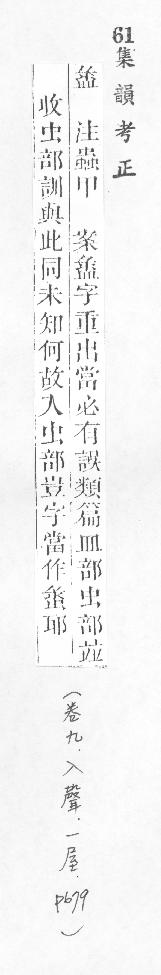 61集韻考正
螸 注蟲甲 案螸字重出當必有誤類篇皿部虫部並
收虫部訓與此同未知何故入虫部豈字當作螸耶
(卷九.入聲.一屋.p679)